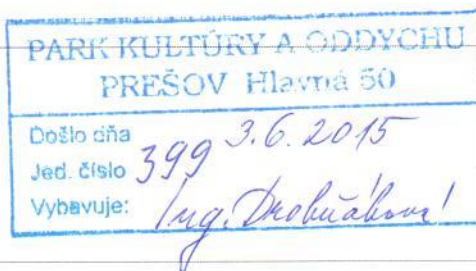 PARK KULTÚRY A ODDYCHU
PREŠOV Hlavná 50
Došlo dňa 3.6.2015
Jed. číslo 399
Vybavuje: Ing. Drobňáková